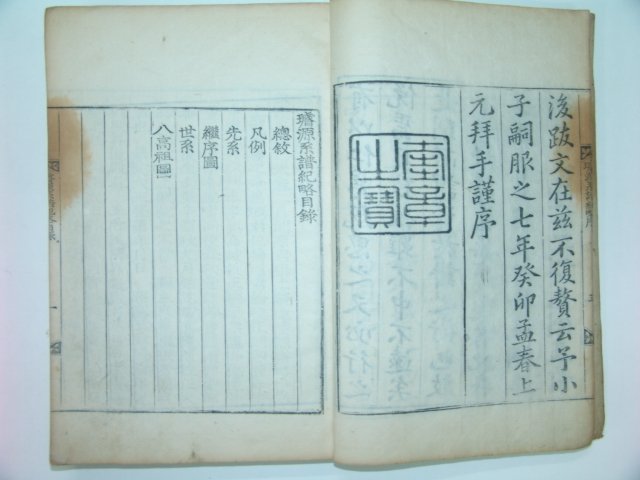 後跋文在兹不復贅云予小
子嗣服之七年癸卯孟春上
元拜手謹序
奎章之寶
璿源系譜紀略目錄
總敘
凡例
先系
繼序圖
世系
八高祖圖